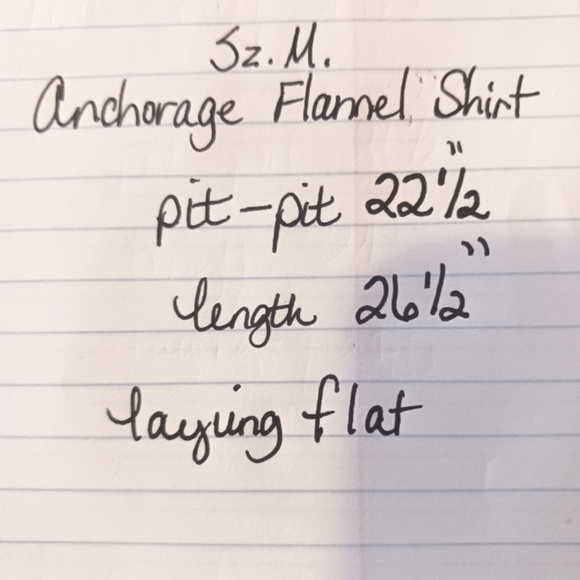 Sz. M.
Anchorage Flannel Shirt
pit-pit 22 1/2"
length 26 1/2"
laying flat